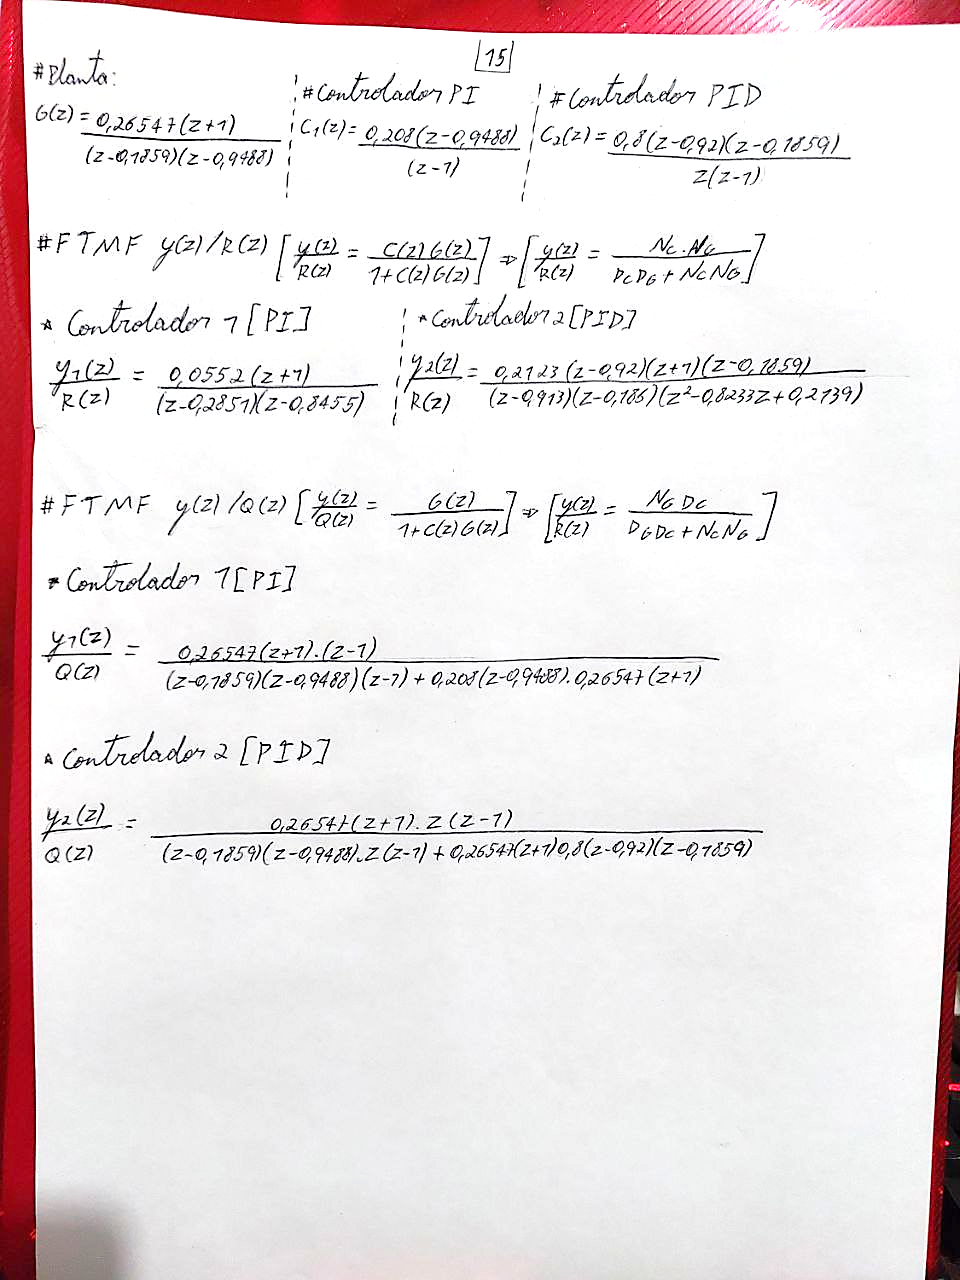 15
#Planta:
G(z) = 0,26547(z+1) / (z-0,1859)(z-0,9488)
#Controlador PI
C1(z)= 0,208(z-0,9488) / (z-1)
#Controlador PID
C2(z) = 0,8(z-0,92)(z-0,1859) / z(z-1)
#FTMF y(z)/R(z) [y(z)/R(z) = C(z)G(z) / 1+C(z)G(z)] ⇒ [y(z)/R(z) = Nc.NG / DcDG+NcNG]
* Controlador 1 [PI]
y1(z)/R(z) = 0,0552(z+1) / (z-0,2851)(z-0,8455)
* Controlador 2 [PID]
y2(z)/R(z) = 0,2123(z-0,92)(z+1)(z-0,1859) / (z-0,913)(z-0,186)(z²-0,8233z+0,2139)
#FTMF y(z)/Q(z) [y(z)/Q(z) = G(z) / 1+C(z)G(z)] ⇒ [y(z)/R(z) = NG Dc / DGDc+NcNG]
* Controlador 1[PI]
y1(z)/Q(z) = 0,26547(z+1).(z-1) / (z-0,1859)(z-0,9488)(z-1) + 0,208(z-0,9488).0,26547(z+1)
* Controlador 2 [PID]
y2(z)/Q(z) = 0,26547(z+1).z(z-1) / (z-0,1859)(z-0,9488).z(z-1) + 0,26547(z+1)0,8(z-0,92)(z-0,1859)